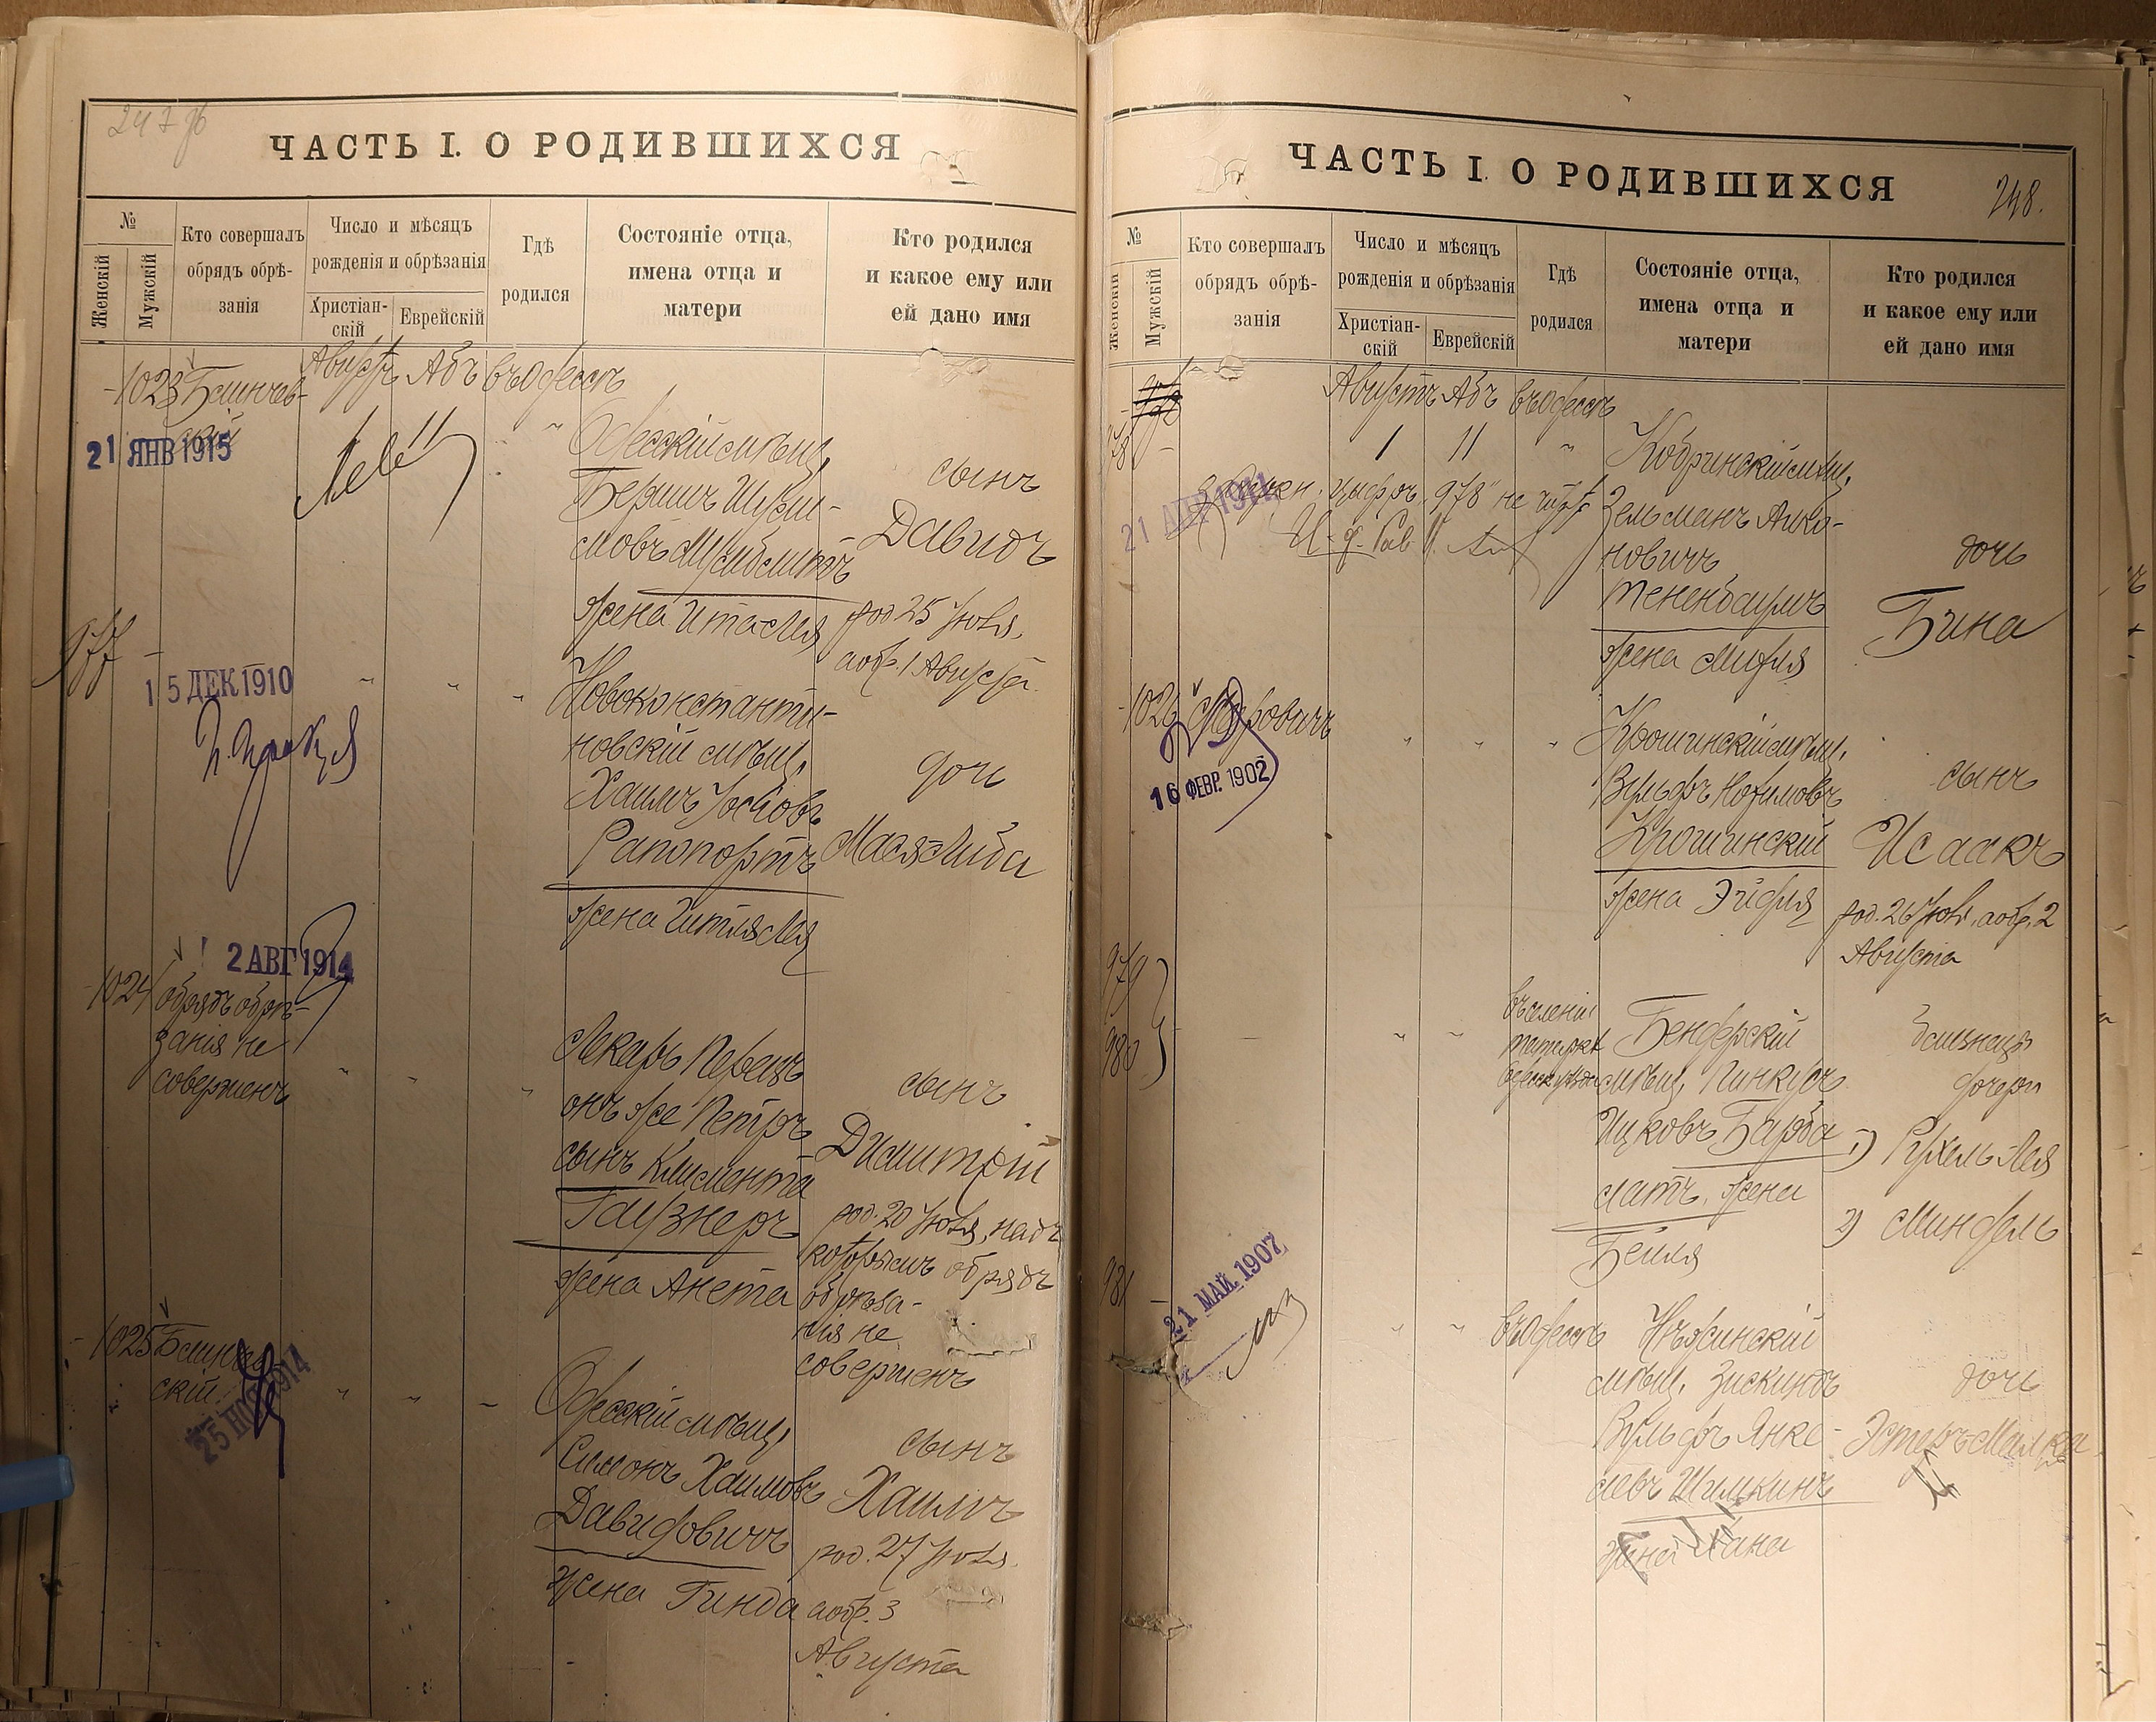 247 об
ЧАСТЬ I. О РОДИВШИХСЯ
№
Женскій
Мужскій
Кто совершалъ
обрядъ обрѣ-
занія
Число и мѣсяцъ
рожденія и обрѣзанія
Христіан-
скій
Еврейскій
Гдѣ
родился
Состояніе отца,
имена отца и
матери
Кто родился
и какое ему или
ей дано имя
1023
Августъ Абъ въ Одессѣ
21 ЯНВ 1915
Одесскій мѣщ.
Бериш
жена Ита Лея
сынъ
Давидъ
род 25 Іюля,
обр. 1 Августа
977
15 ДЕК 1910
Новоконстанти-
новскій мѣщ.
Хаимъ Іосіовъ
Рапопортъ
жена Гитля Лея
дочь
Мася Либа
2 АВГ 1914
1024
обрядъ обрѣ-
занія не
совершенъ
Лекарь Перецъ
онъ же Петръ
сынъ Климента
Гаузнеръ
жена Анета
сынъ
Димитрій
род. 20 Іюля, надъ
которымъ обрядъ
обрѣза-
нія не
совершенъ
1025
скій
25 1914
Одесскій мѣщ.
Симонъ Хаимовъ
Давидовичъ
жена Гинда
сынъ
Хаимъ
род. 27 Іюля
обр. 3
Августа
ЧАСТЬ I. О РОДИВШИХСЯ
248.
№
Женскій
Мужскій
Кто совершалъ
обрядъ обрѣ-
занія
Число и мѣсяцъ
рожденія и обрѣзанія
Христіан-
скій
Еврейскій
Гдѣ
родился
Состояніе отца,
имена отца и
матери
Кто родился
и какое ему или
ей дано имя
Августъ Абъ въ Одессѣ
978
1 11
Кобринскій мѣщ.
Зельманъ Анко-
новичъ
Тененбаумъ
жена Мифля
дочь
Бина
цифръ "978" не чит.
21 АПР 1911
1026
16 ФЕВР. 1902
Крошинскій мѣщ.
Вульфъ Нохимовъ
Крошинскій
жена Эйдля
сынъ
Исаакъ
род. 26 Іюля, обр. 2
Августа
979
980
въ селеніи
Татарка
Одесск. уѣзда
Бендерскій
мѣщ. Пинкусъ
Ицковъ Барба-
латъ, жена
Бейля
близнецы
дочери
1) Рухель-Лея
2) Миндель
981
21 МАЙ. 1907
въ Одессѣ
Нѣжинскій
мѣщ. Зискиндъ
Вульфъ Янке-
левъ Шимкинъ
жена Хана
дочь
Эстеръ Малка